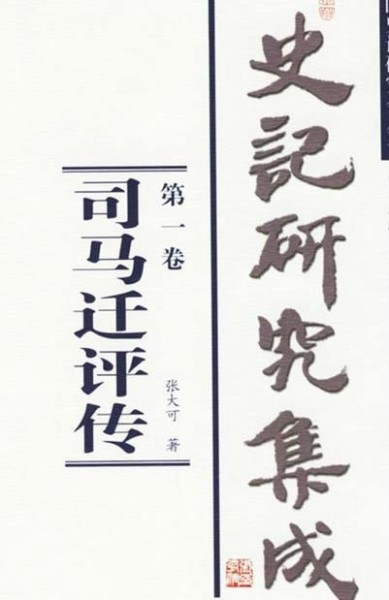 史記研究集成
第一卷
司马迁评传
张大可 著